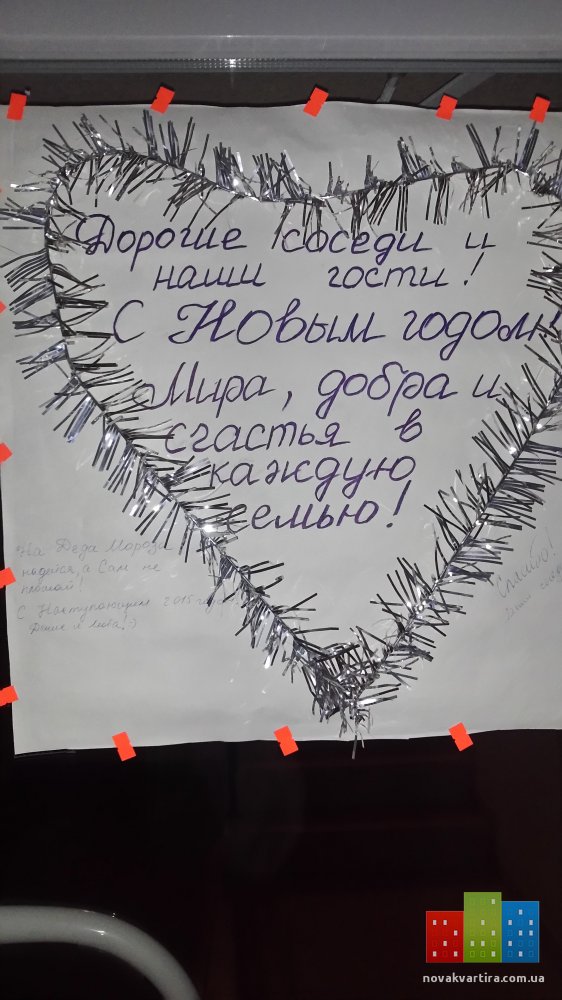 Дорогие соседи и
наши гости!
С Новым годом!
Мира, добра и
счастья в
каждую
семью!
На Деда Мороза
надейся, а Сам не
плошай!
С Наступающим 2015 годом!
Денис и Люба! :)
Спасибо!
novakvartira.com.ua